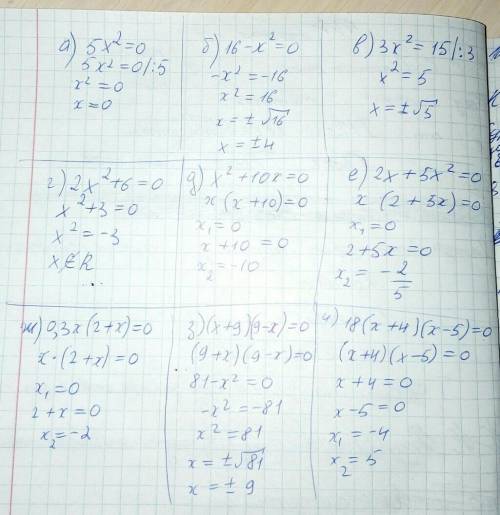 а) 5x²=0
5x²=0 |:5
x²=0
x=0
б) 16-x²=0
-x²=-16
x²=16
x=±√16
x=±4
в) 3x²=15 |:3
x²=5
x=±√5
г) 2x²+6=0
x²+3=0
x²=-3
x∉R
д) x²+10x=0
x(x+10)=0
x₁=0
x+10=0
x₂=-10
е) 2x+5x²=0
x(2+3x)=0
x₁=0
2+5x=0
x₂=-2/5
ж) 0,3x(2+x)=0
x·(2+x)=0
x₁=0
2+x=0
x₂=-2
з) (x+9)(9-x)=0
(9+x)(9-x)=0
81-x²=0
-x²=-81
x²=81
x=±√81
x=±9
и) 18(x+4)(x-5)=0
(x+4)(x-5)=0
x+4=0
x-5=0
x₁=-4
x₂=5